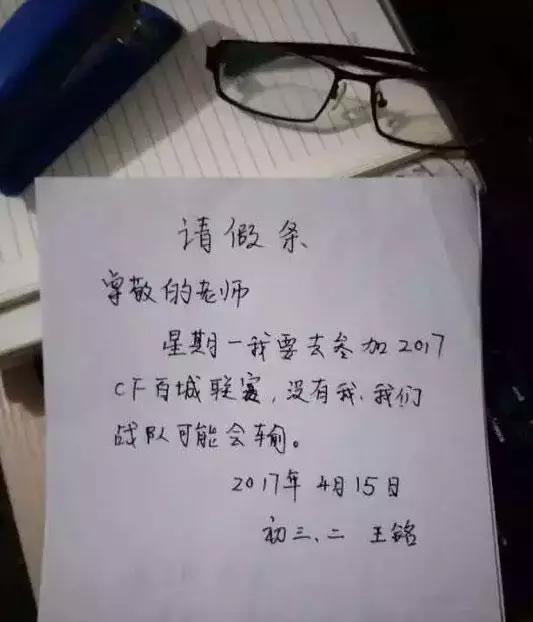 请假条
尊敬的老师
星期一我要去参加2017
CF百城联赛,没有我,我们
战队可能会输。
2017年4月15日
初三、二 王铭